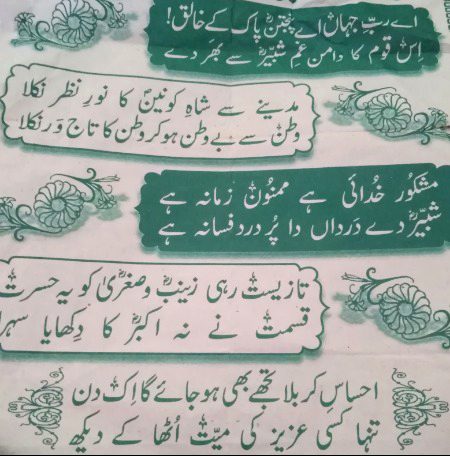 اے ربِّ جہاں اے پنجتنؑ پاک کے خالق!
اِس قوم کا دامن غمِ شبیرؑ سے بھر دے
مدینے سے شاہِ کونینؐ کا نورِ نظر نکلا
وطن سے بے وطن ہو کر وطن کا تاج ور نکلا
مشکور خُدائی ہے ممنون زمانہ ہے
شبیرؑ دے درداں دا پُر درد فسانہ ہے
تازیست رہی زینبؑ و صغریٰؑ کو یہ حسرت
قسمت نے نہ اکبرؑ کا دِکھایا سہرا
احساسِ کربلا تجھے بھی ہو جائے گا اِک دن
تنہا کسی عزیز کی میّت اُٹھا کے دیکھ